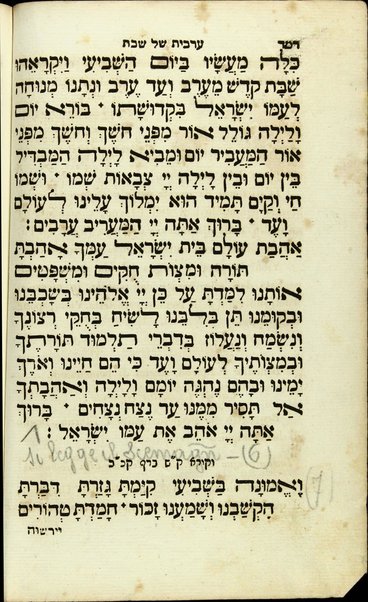 דסר ערבית של שבת
כִּלָּה מַעֲשָׂיו בַּיּוֹם הַשְּׁבִיעִי וַיִּקְרָאֵהוּ
שַׁבַּת קֹדֶשׁ מֵעֶרֶב וְעַד עֶרֶב וּנְתָנוֹ מְנוּחָה
לְעַמּוֹ יִשְׂרָאֵל בִּקְדוּשָׁתוֹ ׃ בּוֹרֵא יוֹם
וָלַיְלָה גּוֹלֵל אוֹר מִפְּנֵי חֹשֶׁךְ וְחֹשֶׁךְ מִפְּנֵי
אוֹר הַמַּעֲבִיר יוֹם וּמֵבִיא לַיְלָה הַמַּבְדִּיל
בֵּין יוֹם וּבֵין לַיְלָה יְיָ צְבָאוֹת שְׁמוֹ ׃ וּשְׁמוֹ
חַי וְקַיָּם תָּמִיד הוּא יִמְלוֹךְ עָלֵינוּ לְעוֹלָם
וָעֶד ׃ בָּרוּךְ אַתָּה יְיָ הַמַּעֲרִיב עֲרָבִים ׃
אַהֲבַת עוֹלָם בֵּית יִשְׂרָאֵל עַמְּךָ אָהַבְתָּ
תּוֹרָה וּמִצְוֹת חֻקִּים וּמִשְׁפָּטִים
אוֹתָנוּ לִמַּדְתָּ עַל כֵּן יְיָ אֱלֹהֵינוּ בְּשָׁכְבֵנוּ
וּבְקוּמֵנוּ תֵּן בְּלִבֵּנוּ לָשִׂיחַ בְּחֻקֵּי רְצוֹנֶךָ
וְנִשְׂמַח וְנַעֲלוֹז בְּדִבְרֵי תַלְמוּד תּוֹרָתֶךָ
וּבְמִצְוֹתֶיךָ לְעוֹלָם וָעֶד כִּי הֵם חַיֵּינוּ וְאֹרֶךְ
יָמֵינוּ וּבָהֶם נֶהְגֶּה יוֹמָם וָלַיְלָה וְאַהֲבָתְךָ
אַל תָּסִיר מִמֶּנּוּ עַד נֵצַח נְצָחִים ׃ בָּרוּךְ
אַתָּה יְיָ אֹהֵב אֶת עַמּוֹ יִשְׂרָאֵל ׃
si legge (6)
וקורא ק"ש בדף קכ"ב
וֶאֱמוּנָה בַּשְּׁבִיעִי קִיַּמְתָּ גָּזַרְתָּ דִּבַּרְתָּ (7)
הִקְשַׁבְנוּ וְשָׁמַעְנוּ זָכוֹר ׃ חָמַדְתָּ טְהוֹרִים
יירשוה